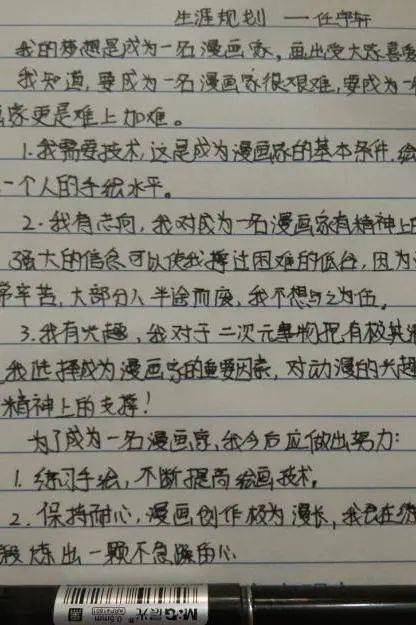 生涯规划 ——任宇轩
我的梦想是成为一名漫画家,画出受大家喜爱
我知道,要成为一名漫画家很艰难,要成为一
画家更是难上加难。
1.我需要技术,这是成为漫画家的基本条件,绘
一个人的手绘水平。
2.我有志向,我对成为一名漫画家有精神上的
强大的信念可以使我撑过困难的低谷,因为
常辛苦,大部分人半途而废,我不想与之为伍。
3.我有兴趣,我对于二次元事物抱有极其
我选择成为漫画家的重要因素,对动漫的兴趣
精神上的支撑!
为了成为一名漫画家,我今后应做出努力:
1.练习手绘,不断提高绘画技术。
2.保持耐心,漫画创作极为漫长,我想在练
锻炼出一颗不急躁的心
M&G 晨光
0.5mm
ARP41801